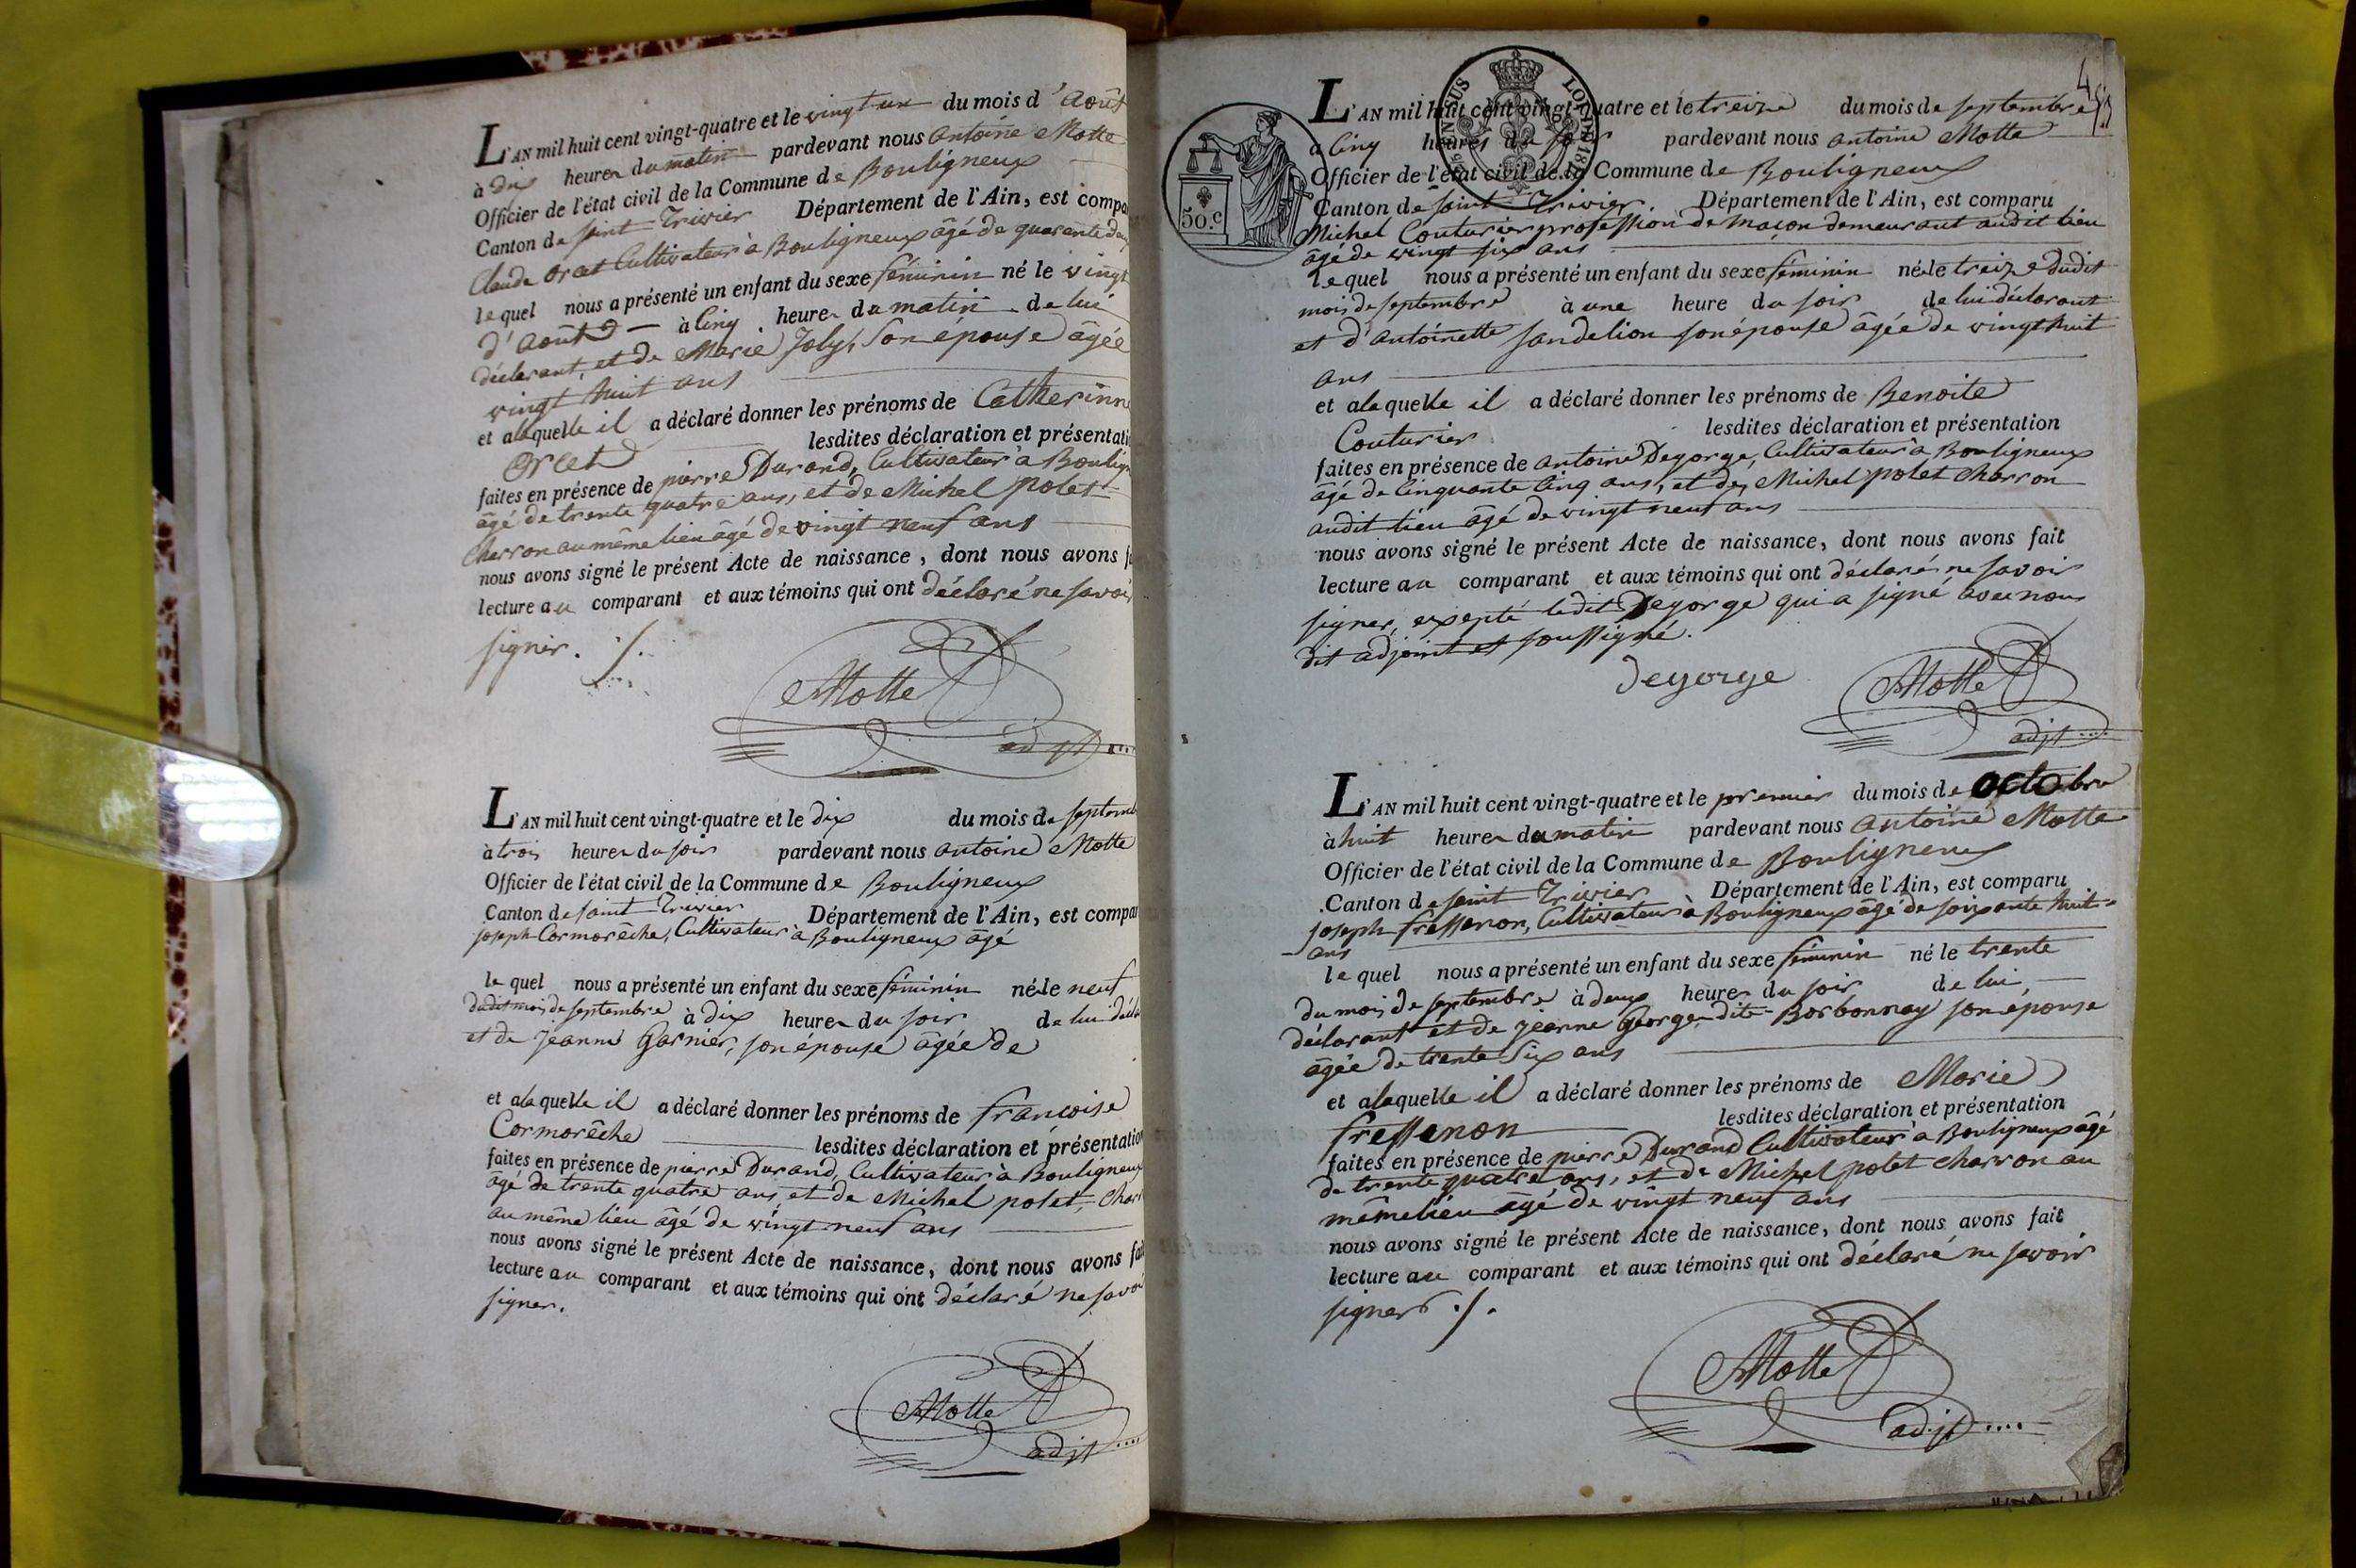 L'AN mil huit cent vingt-quatre et le vingt un du mois d'août
à dix heures du matin pardevant nous antoine Motte
Officier de l'état civil de la Commune de Bouligneux
Canton de saint Trivier Département de l'Ain, est compa
Claude orcet Cultivateur à Bouligneux âgé de quarente deux
le quel nous a présenté un enfant du sexe féminin né le vingt
d'août à cinq heures du matin de lui
déclarant, et de Marie Joly, son épouse âgée
vingt huit ans
et a laquelle il a déclaré donner les prénoms de Catherinne
orcet lesdites déclaration et présentati
faites en présence de pierre Durand, Cultivateur à Boulign
âgé de trente quatre ans, et de Michel polet
charron au même lieu âgé de vingt neuf ans
nous avons signé le présent Acte de naissance, dont nous avons f
lecture au comparant et aux témoins qui ont déclaré ne savoir
signer. ./.
Motte
adjt
L'AN mil huit cent vingt-quatre et le dix du mois de septemb
à trois heures du soir pardevant nous antoine Motte
Officier de l'état civil de la Commune de Bouligneux
Canton de saint Trivier Département de l'Ain, est compar
joseph Cormorêche, Cultivateur à Bouligneux âgé
le quel nous a présenté un enfant du sexe féminin né le neuf
dudit mois de septembre à dix heures du soir de lui décla
et de jeanne Garnier, son épouse âgée de
et a la quelle il a déclaré donner les prénoms de francoise
Cormorêche lesdites déclaration et présentation
faites en présence de pierre Durand, Cultivateur à Bouligneux
âgé de trente quatre ans, et de Michel polet, char
au même lieu âgé de vingt neuf ans
nous avons signé le présent Acte de naissance, dont nous avons fai
lecture au comparant et aux témoins qui ont déclaré ne savoi
signer.
Motte
adjt
4
50.c
L'AN mil huit cent vingt-quatre et le treize du mois de septembre
a cinq heures du soir pardevant nous antoine Motte
Officier de l'état civil de la Commune de Bouligneux
Canton de saint Trivier Département de l'Ain, est comparu
Michel Couturier profession de maçon demeurant audit lieu
âgé de vingt six ans
le quel nous a présenté un enfant du sexe féminin né le treize dudit
mois de septembre à une heure du soir de lui déclarant
et d'antoinette sandelion son épouse âgée de vingt huit
ans
et a la quelle il a déclaré donner les prénoms de Benoite
Couturier lesdites déclaration et présentation
faites en présence de antoine Degorge, Cultivateur à Bouligneux
âgé de cinquante cinq ans, et de Michel polet charron
audit lieu âgé de vingt neuf ans
nous avons signé le présent Acte de naissance, dont nous avons fait
lecture au comparant et aux témoins qui ont déclaré ne savoir
signer, exepté ledit Degorge qui a signé avec nous
dit adjoint et soussigné.
degorge Motte
adjt
L'AN mil huit cent vingt-quatre et le premier du mois de octobre
à huit heures du matin pardevant nous antoine Motte
Officier de l'état civil de la Commune de Bouligneux
Canton de saint Trivier Département de l'Ain, est comparu
joseph fressenon, Cultivateur à Bouligneux âgé de soixante huit
ans
le quel nous a présenté un enfant du sexe féminin né le trente
du mois de septembre à deux heures du soir de lui,
déclarant et de jeanne George dite Borbonnay son épouse
âgée de trente six ans
et a laquelle il a déclaré donner les prénoms de Marie
fressenon lesdites déclaration et présentation
faites en présence de pierre Durand Cultivateur à Bouligneux âgé
de trente quatre ans, et de Michel polet charron au
même lieu âgé de vingt neuf ans
nous avons signé le présent Acte de naissance, dont nous avons fait
lecture au comparant et aux témoins qui ont déclaré ne savoir
signer ./.
Motte
adjt